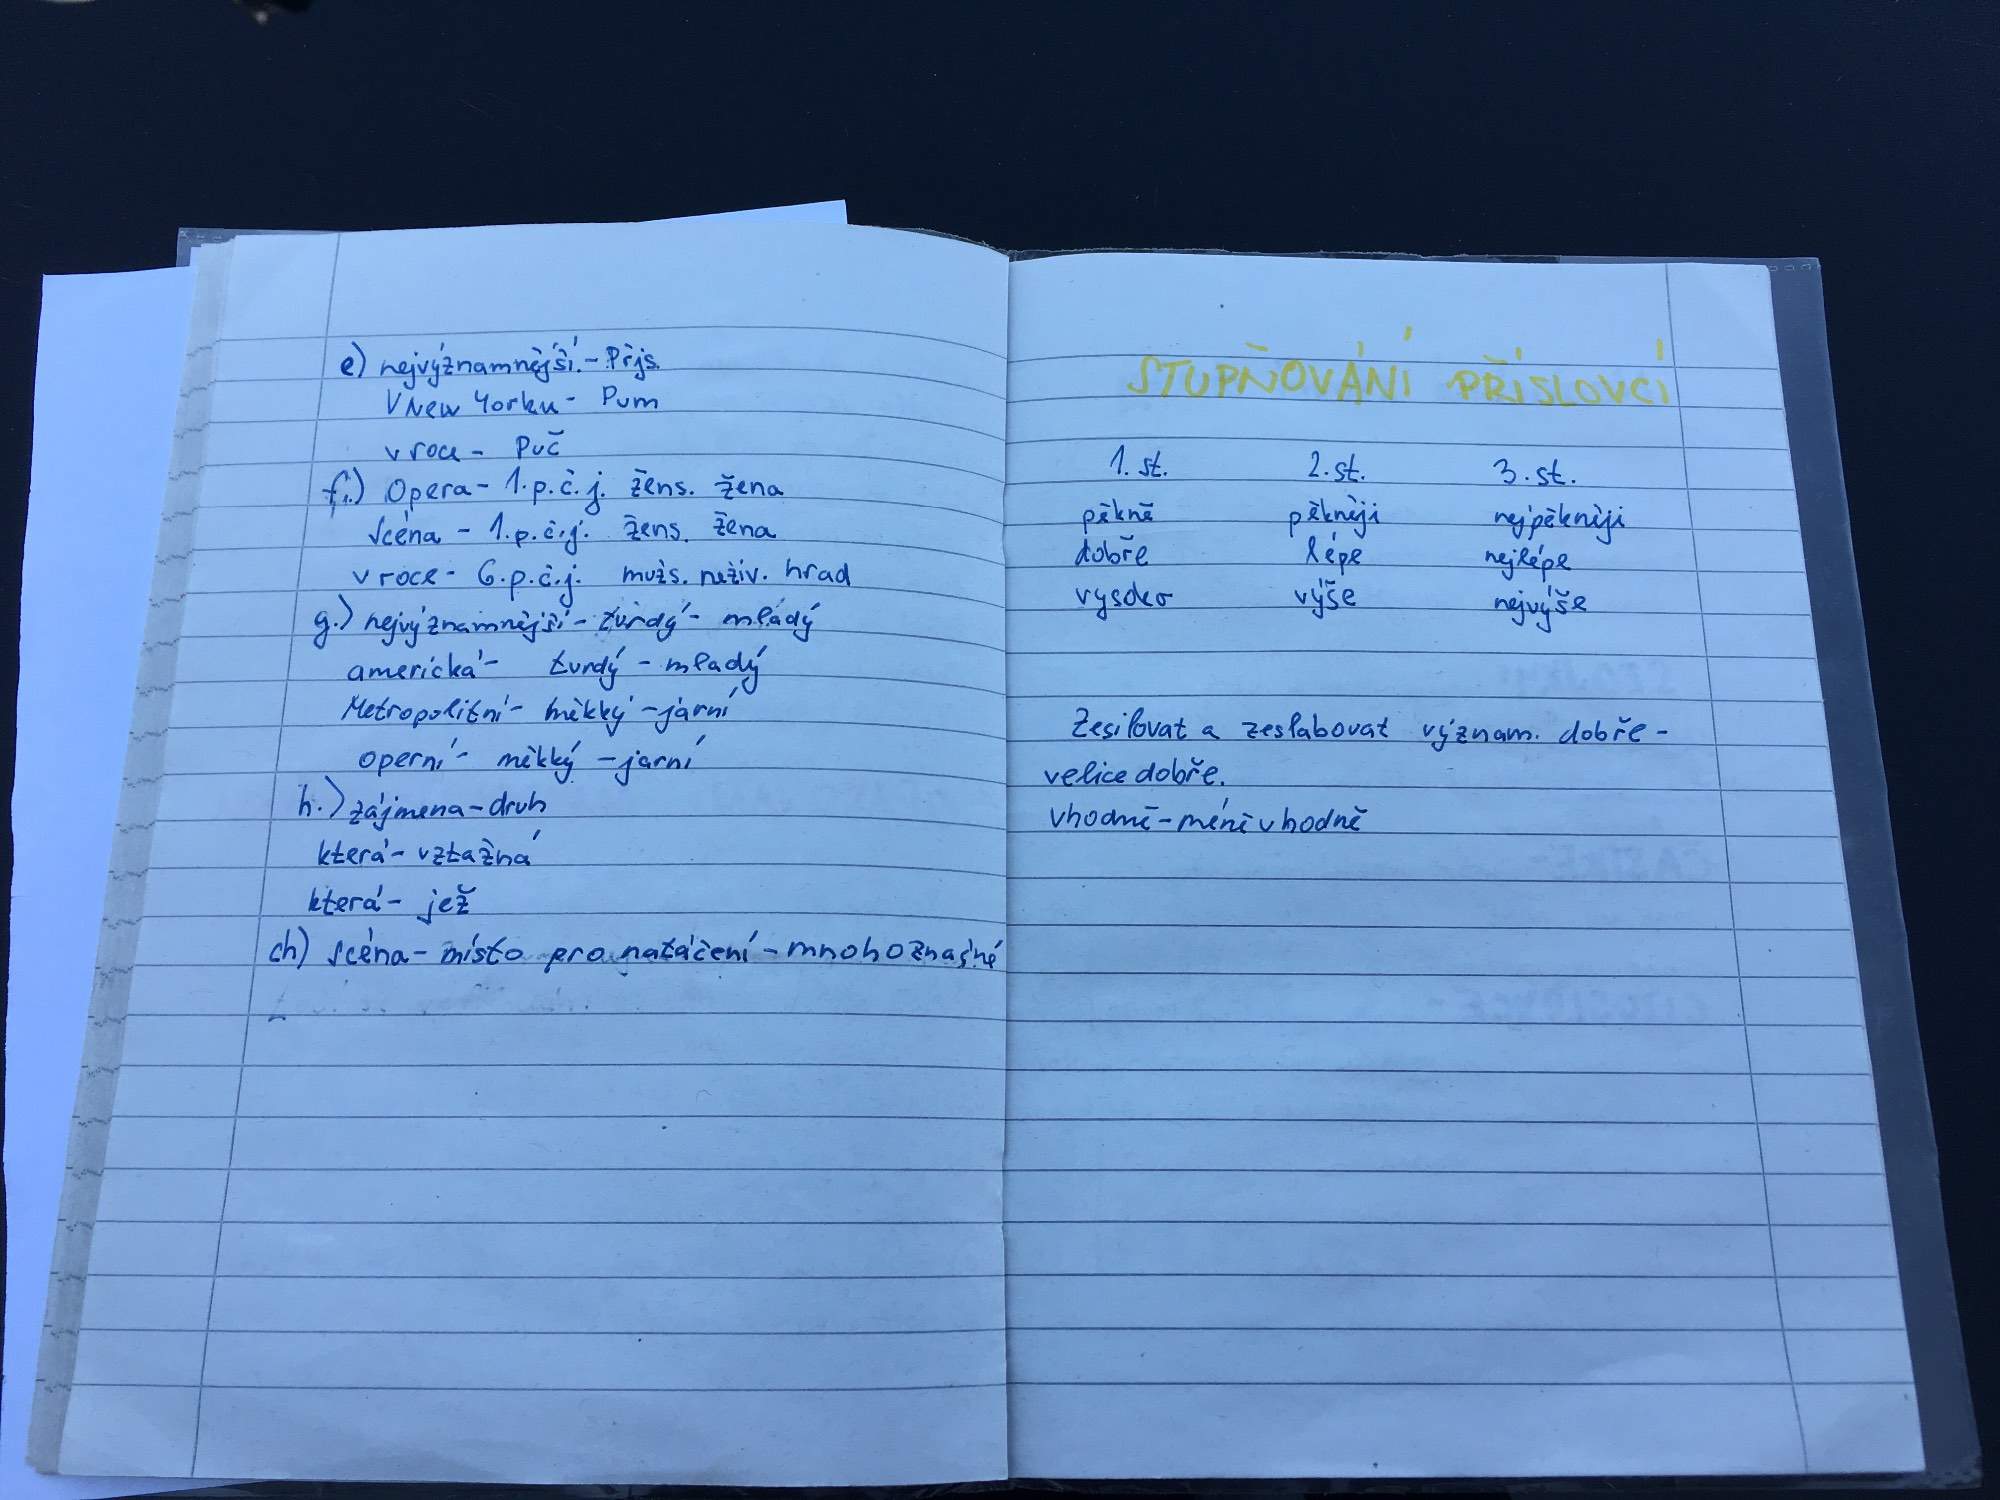 e) nejvýznamnější - Přjs.
V New Yorku - Pum
v roce - Puč
f.) Opera - 1. p. č. j. žens. žena
scéna - 1. p. č. j. žens. žena
v roce - 6. p. č. j. mužs. neživ. hrad
g.) nejvýznamnější - tvrdý - mladý
americká - tvrdý - mladý
Metropolitní - měkký - jarní
operní - měkký - jarní
h.) zájmena - druh
která - vztažná
která - jež
ch) scéna - místo pro natáčení - mnohoznačné
STUPŇOVÁNÍ PŘÍSLOVCÍ
1. st. 2. st. 3. st.
pěkně pěkněji nejpěkněji
dobře lépe nejlépe
vysoko výše nejvýše
Zesilovat a zeslabovat význam. dobře -
velice dobře.
vhodně - méně vhodně